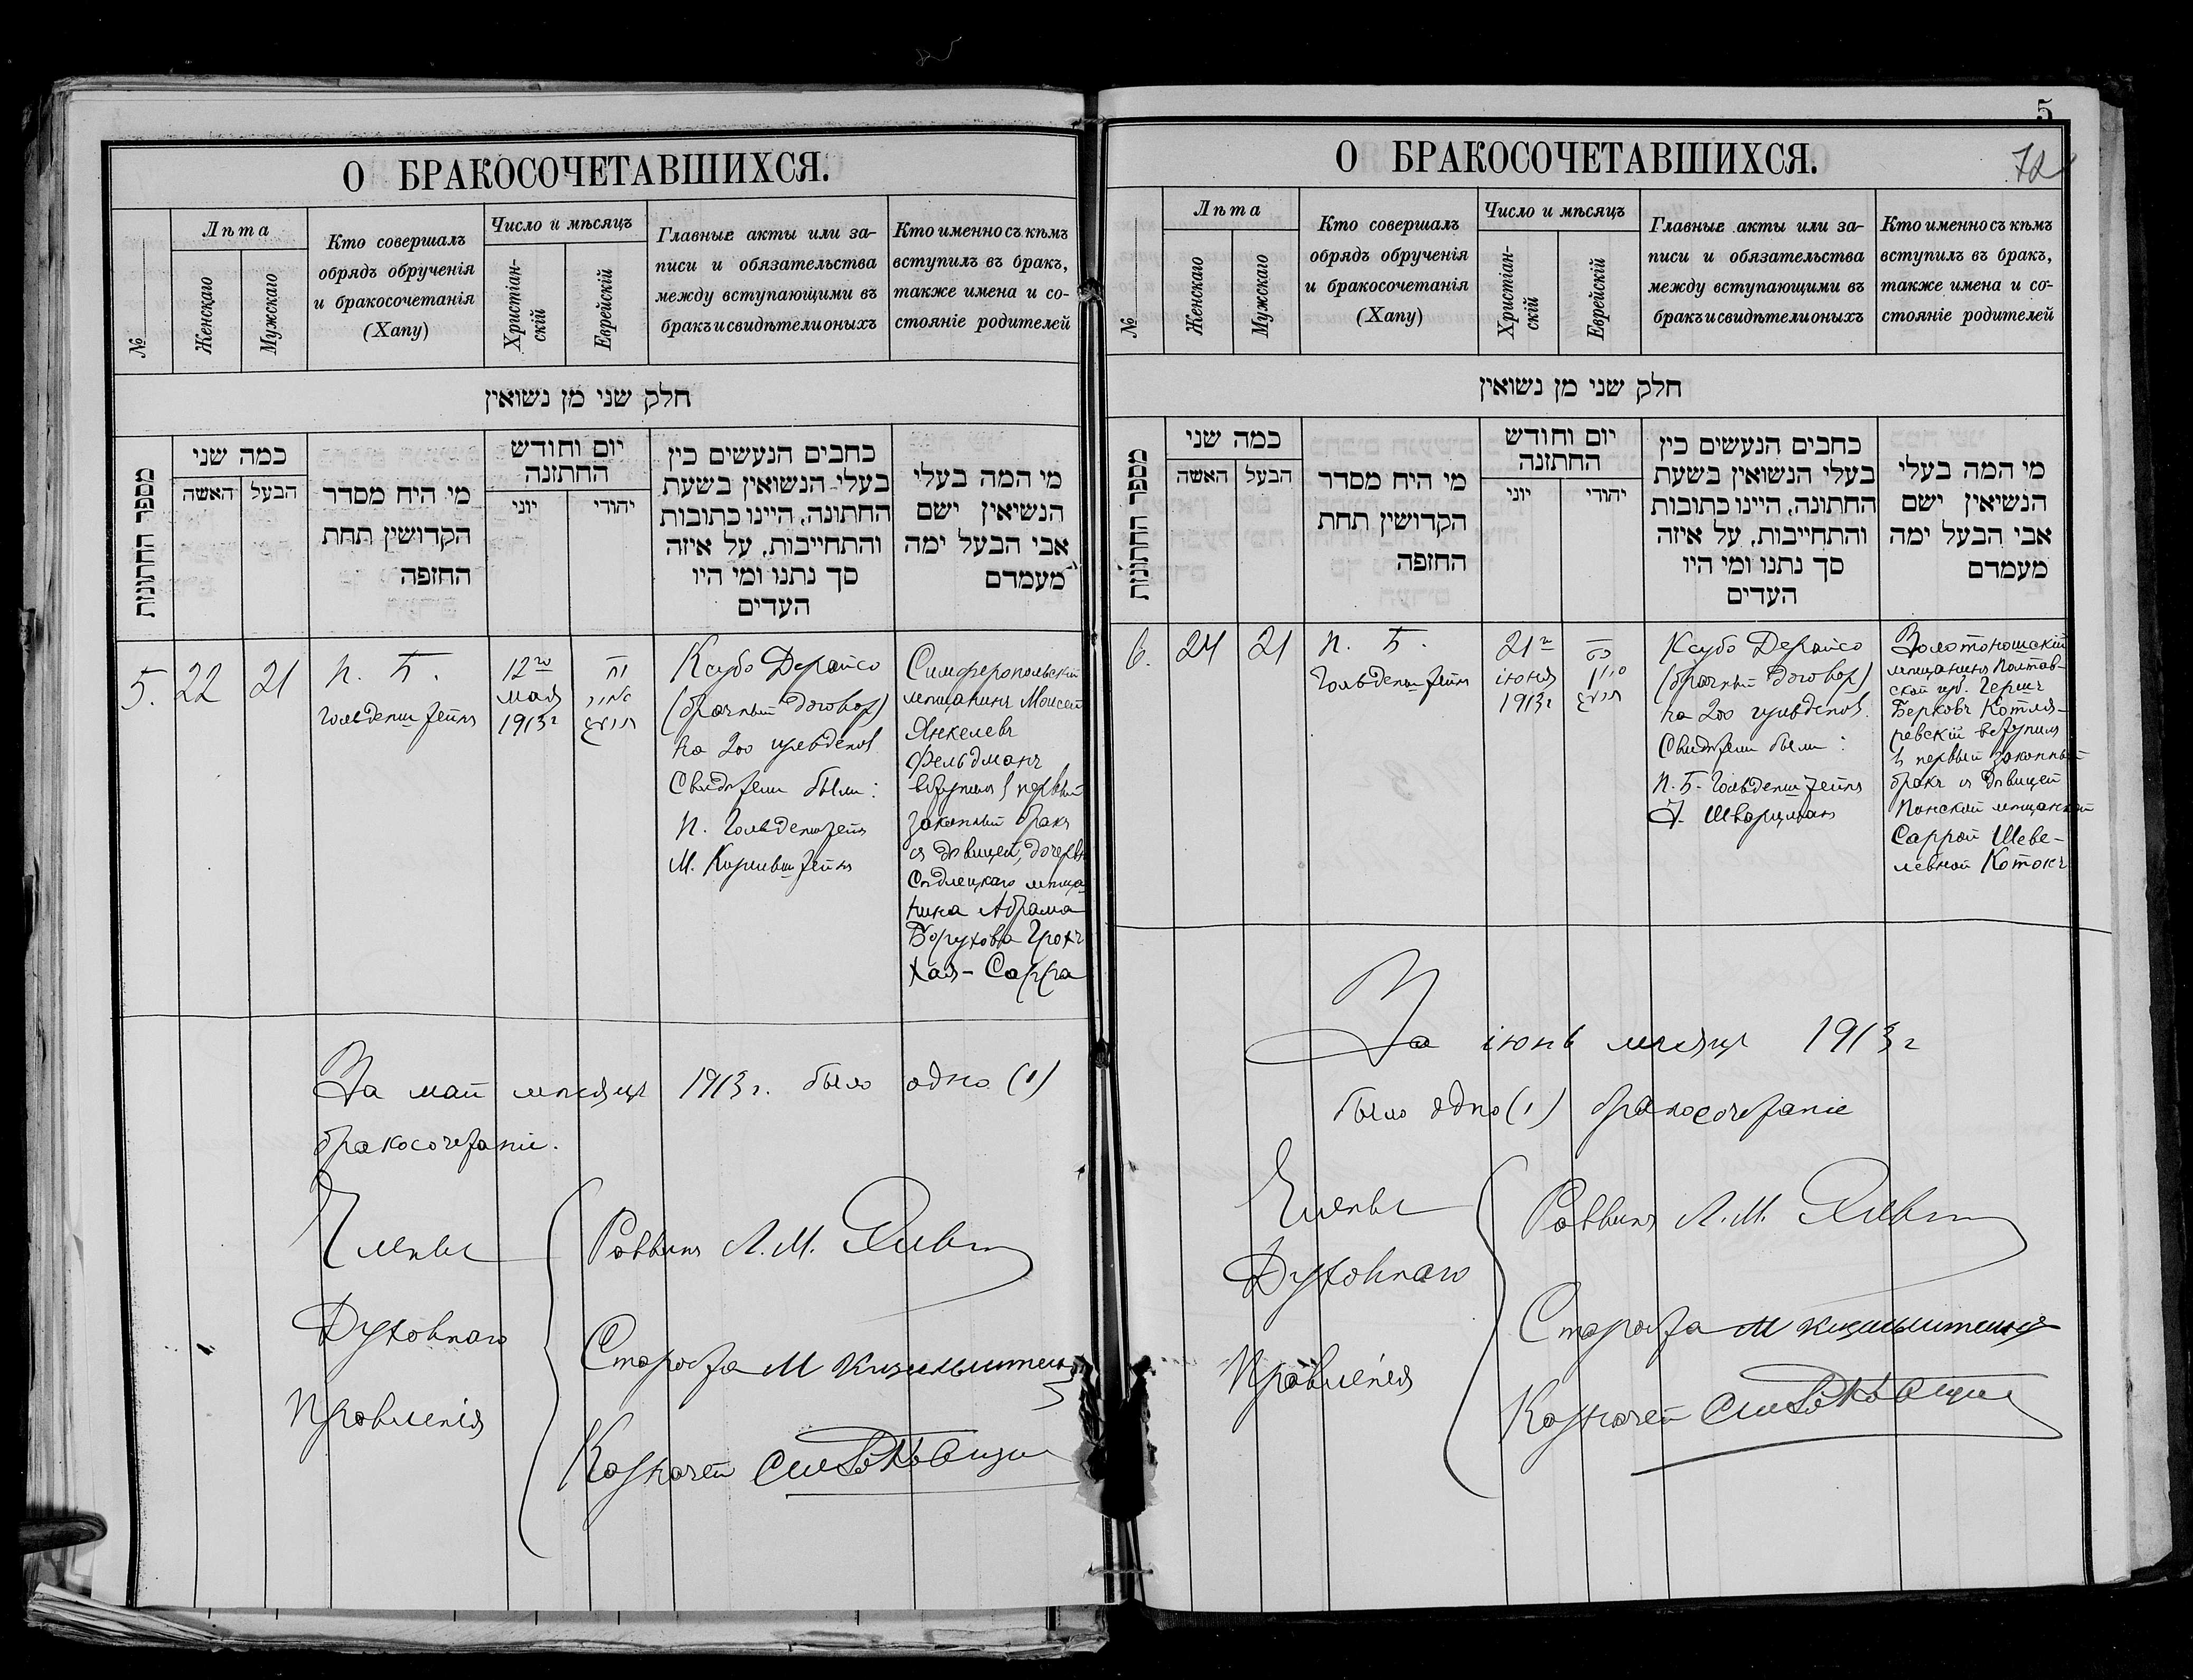 О БРАКОСОЧЕТАВШИХСЯ.
№
Лѣта
Женскаго
Мужскаго
Кто совершалъ
обрядъ обрученія
и бракосочетанія
(Хапу)
Число и мѣсяцъ
Христіан-
скій
Еврейскій
Главные акты или за-
писи и обязательства
между вступающими въ
бракъ и свидѣтели оныхъ
Кто именно съ кѣмъ
вступилъ въ бракъ,
также имена и со-
стояніе родителей
חלק שני מן נשואין
מספר החתונות
כמה שני
האשה
הבעל
מי היח מסדר
הקדושין תחת
החזפה
יום וחודש
החתזנה
יוני
יהודי
כחבים הנעשים כין
בעלי הנשואין בשעת
החתונה, היינו כתובות
והתחייבות, על איזה
סך נתנו ומי היו
העדים
מי המה בעלי
הנשיאין ישם
אבי הבעל ימה
מעמדם
5.
22
21
П. Б.
Гольденштейнъ
12го
мая
1913г
אייר
תרעג
Ксубо Дерайсо
(брачный договоръ)
на 200 гульденов.
Свидѣтели были:
П. Гольденштейнъ
М. Киршенштейнъ
Симферопольскій
мѣщанинъ Моисей
Янкелевъ
Фельдманъ
вступилъ в первый
законный бракъ
съ дѣвицей, дочерью
Сѣдлецкаго мѣща-
нина Абрама
Борухова Гротъ
Хая-Сарра
За май мѣсяцъ 1913г. было одно (1)
бракосочетаніе.
Члены
Духовнаго
Правленія
Раввинъ Л. М.
Староста М
Казначей
5
72
О БРАКОСОЧЕТАВШИХСЯ.
№
Лѣта
Женскаго
Мужскаго
Кто совершалъ
обрядъ обрученія
и бракосочетанія
(Хапу)
Число и мѣсяцъ
Христіан-
скій
Еврейскій
Главные акты или за-
писи и обязательства
между вступающими въ
бракъ и свидѣтели оныхъ
Кто именно съ кѣмъ
вступилъ въ бракъ,
также имена и со-
стояніе родителей
חלק שני מן נשואין
מספר החתונות
כמה שני
האשה
הבעל
מי היח מסדר
הקדושין תחת
החזפה
יום וחודש
החתזנה
יוני
יהודי
כחבים הנעשים כין
בעלי הנשואין בשעת
החתזנה, היינו כתובות
והתחייבות, על איזה
סך נתנו ומי היו
העדים
מי המה בעלי
הנשיאין ישם
אבי הבעל ימה
מעמדם
6.
24
21
П. Б.
Гольденштейнъ
21го
іюня
1913г
סיון
תרעג
Ксубо Дерайсо
(брачный договоръ)
на 200 гульденов.
Свидѣтели были:
П. Б. Гольденштейнъ
Шварцманъ
Золотоношскій
мѣщанинъ Полтав-
ской губ. Гершъ
Берковъ Котля-
ревскій вступилъ
в первый законный
бракъ съ дѣвицей
Пинской мѣщанкой
Саррой Шеве-
левной Котокъ
За іюнь мѣсяцъ 1913г
было одно (1) бракосочетаніе
Члены
Духовнаго
Правленія
Раввинъ Л. М.
Староста М
Казначей